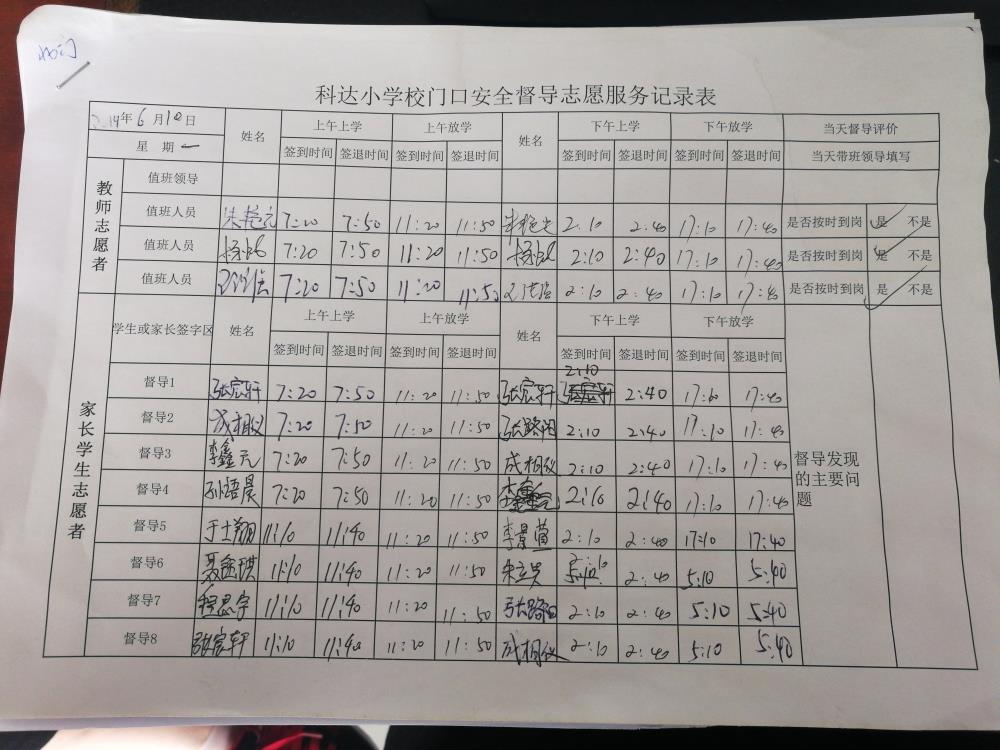 北门
科达小学校门口安全督导志愿服务记录表
2019年6月10日 姓名 上午上学 上午放学 姓名 下午上学 下午放学 当天督导评价
星 期一 签到时间 签退时间 签到时间 签退时间 签到时间 签退时间 签到时间 签退时间 当天带班领导填写
教师志愿者
值班领导
值班人员 7:20 7:50 11:20 11:50 2:10 2:40 17:10 17:40 是否按时到岗 是 不是
值班人员 7:20 7:50 11:20 11:50 2:10 2:40 17:10 17:40 是否按时到岗 是 不是
值班人员 7:20 7:50 11:20 11:50 2:10 2:40 17:10 17:40 是否按时到岗 是 不是
家长学生志愿者
学生或家长签字区 姓名 上午上学 上午放学 姓名 下午上学 下午放学
签到时间 签退时间 签到时间 签退时间 签到时间 签退时间 签到时间 签退时间
督导1 张宸轩 7:20 7:50 11:20 11:50 张宸轩 2:10 2:40 17:10 17:40
督导2 成相仪 7:20 7:50 11:20 11:50 2:10 2:40 17:10 17:40
督导3 李鑫元 7:20 7:50 11:20 11:50 成相仪 2:10 2:40 17:10 17:40
督导4 孙语晨 7:20 7:50 11:20 11:50 2:10 2:40 17:10 17:40
督导5 于士翔 11:10 11:40 11:20 11:50 李景萱 2:10 2:40 17:10 17:40
督导6 11:10 11:40 11:20 11:50 2:40 5:10 5:40
督导7 程思宇 11:10 11:40 11:20 11:50 2:10 2:40 5:10 5:40
督导8 张宸轩 11:10 11:40 11:20 11:50 成相仪 2:10 2:40 5:10 5:40
督导发现的主要问题